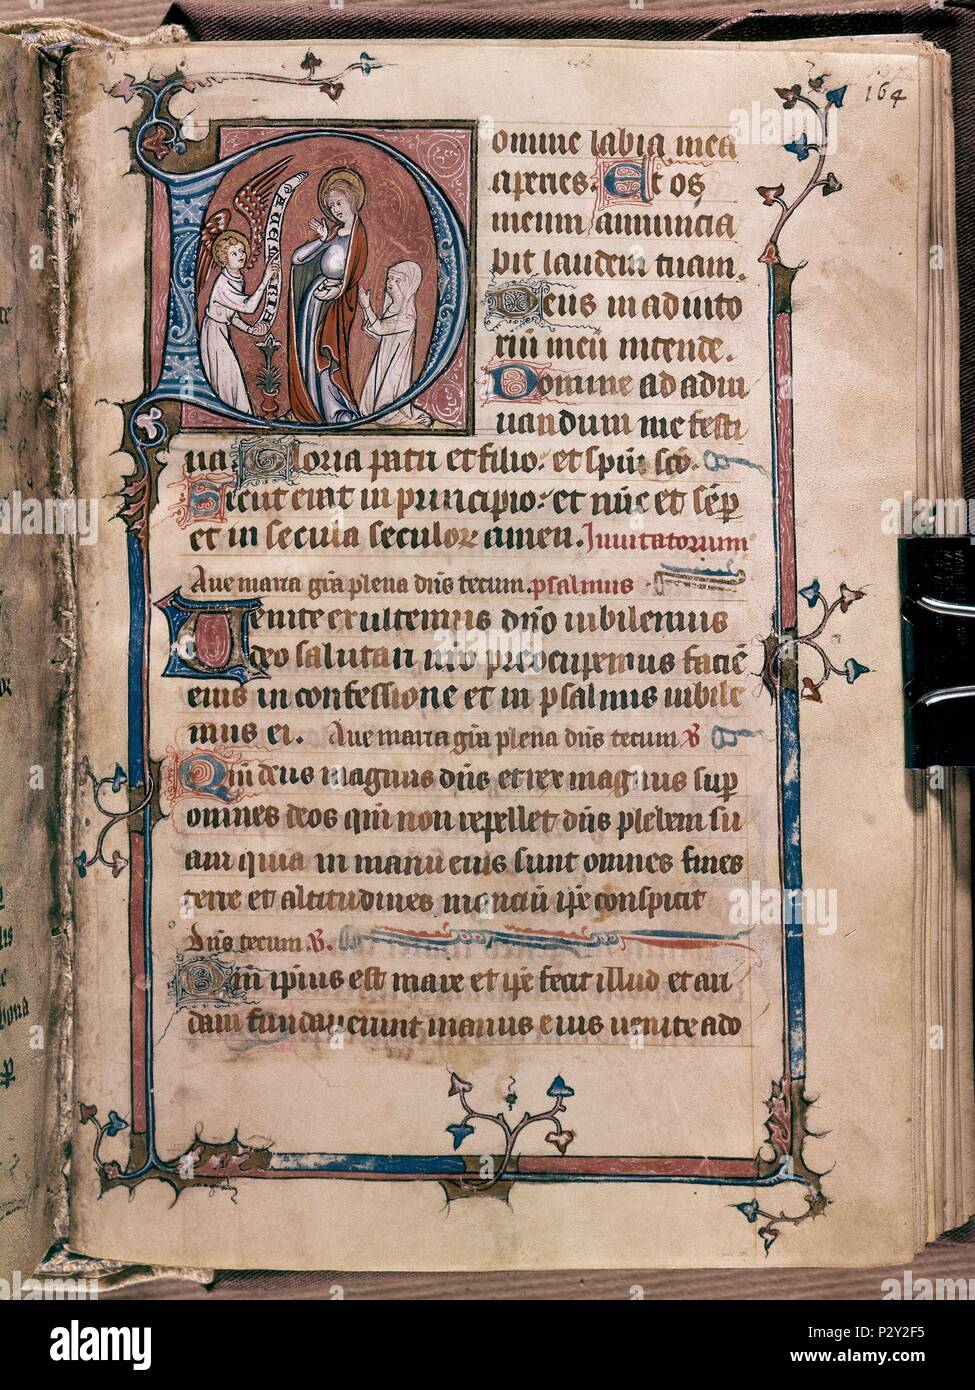 164
AUE MARIA
Domine labia mea
aperies. Et os
meum annuncia
bit laudem tuam.
Deus in adiuto
riū meū intende.
Domine ad adiu
uandum me festi
na. Gloria patri et filio. et spūi sco.
Sicut erat in principio. et nūc et sēp
et in secula seculor amen. Inuitatorium
Aue maria grā plena dn̄s tecum. psalmus
Uenite exultemus dño iubilemus
deo salutari nr̄o preocupemus faciē
eius in confessione et in psalmis iubile
mus ei. Aue maria grā plena dn̄s tecum
Qm̄ deus magnus dn̄s et rex magnus sup
omnes deos qm̄ non repellet dn̄s plebem su
am quia in manu eius sunt omnes fines
terre et altitudines monciū ip̄e conspicit
Dn̄s tecum
Qm̄ ipius est mare et ip̄e fecit illud et ari
dam fundauerunt manus eius uenite ado
alamy
alamy
P2Y2F5
www.alamy.com